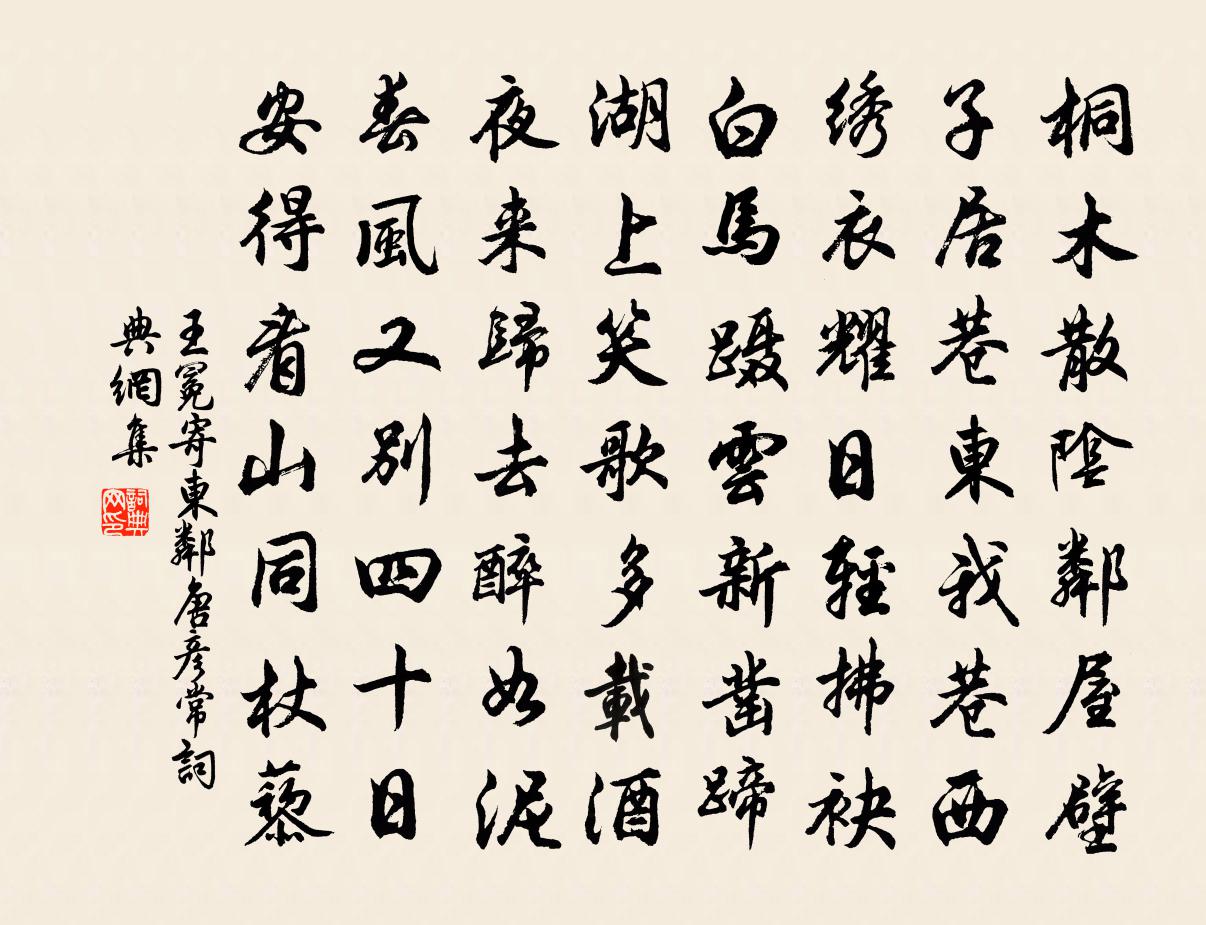 桐木散陰鄰屋壁
子居巷東我巷西
绣衣耀日輕拂袂
白馬蹑雲新凿蹄
湖上笑歌多載酒
夜来歸去醉如泥
春風又別四十日
安得看山同杖藜
王冕寄東鄰唐彦常詞
典網集
詞典网印